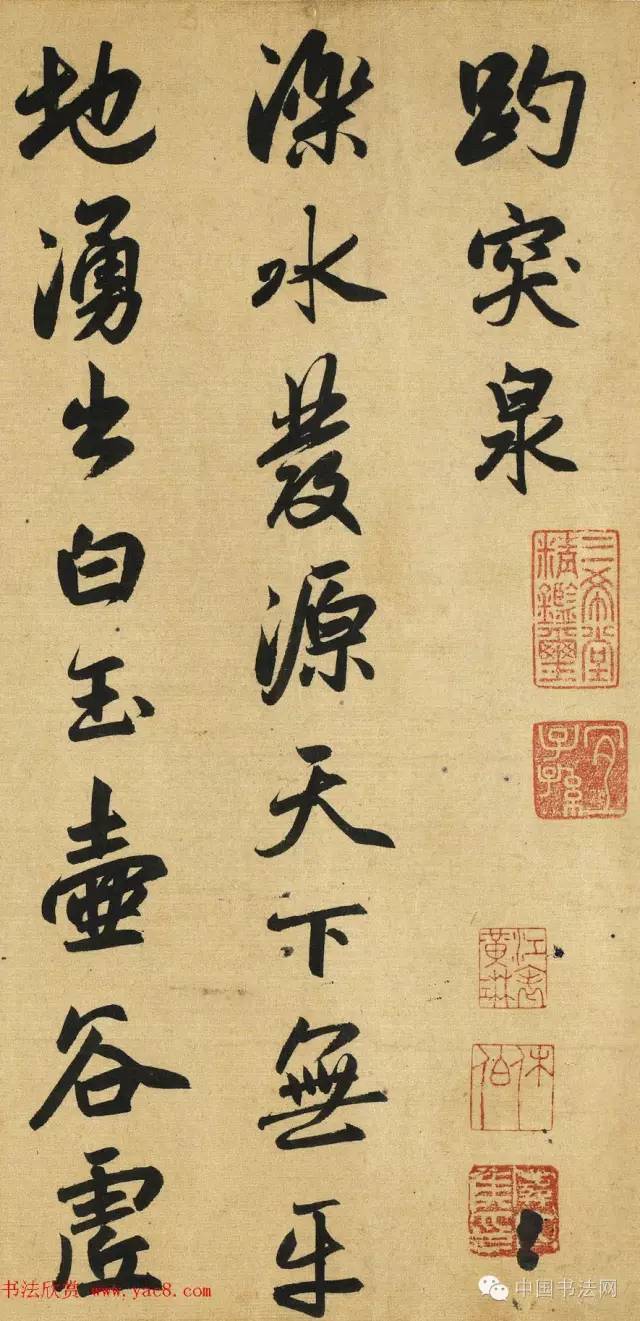 趵突泉
濼水發源天下無平
地湧出白玉壺谷虛
三希堂
精鑑璽
宜
子孫
江表
黃琳
休
伯
书法欣赏 www.yac8.com
中国书法网